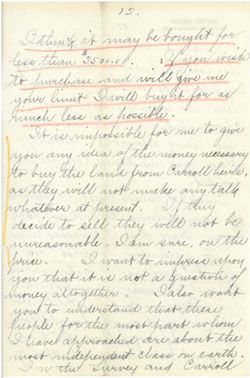 12.
I think it may be bought for
less than $500.00. If you wish
to purchase and will give me
your limit I will buy it for as
much less as possible.
It is impossible for me to give
you any idea of the money necessary
to buy the land from Carroll heirs,
as they will not make any talk
whatever at present. If they
decide to sell they will not be
unreasonable, I am sure, on the
price. I want to impress upon
you that it is not a question of
money altogether. I also want
you to understand that these
people for the most part whom
I have approached are about the
most independent class on earth.
In the Survey and Carroll